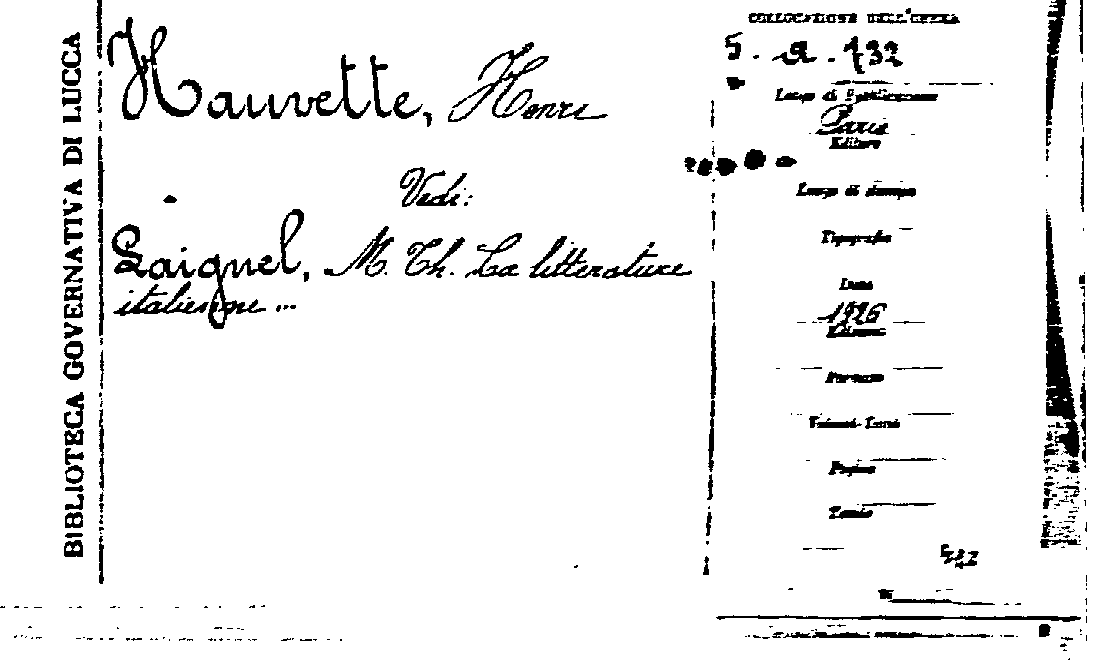 BIBLIOTECA GOVERNATIVA DI LUCCA
Hauvette, Henri
Vedi:
Laignel, M. Th. La litterature
italienne ...
COLLOCAZIONE DELL'OPERA
5. a. 732
Luogo di Pubblicazione
Paris
Editore
Luogo di stampa
Tipografia
Data
1926
Edizione
Formato
Volumi-Tomi
Pagine